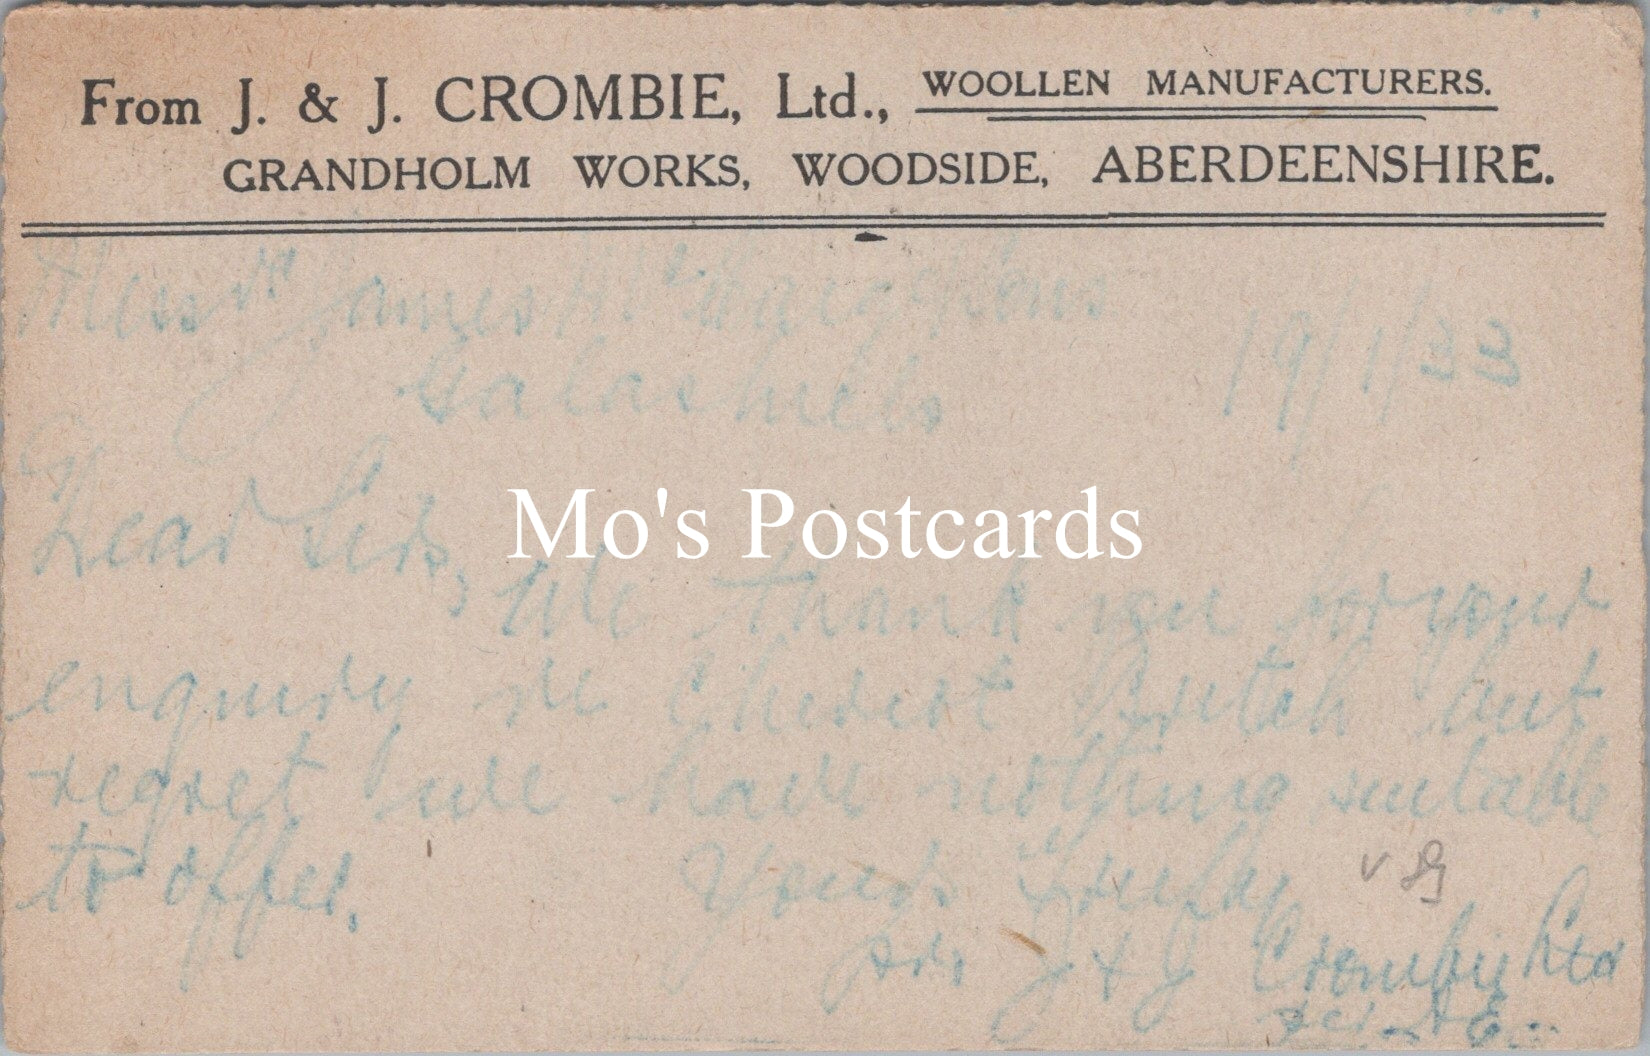 From J. & J. CROMBIE, Ltd., WOOLLEN MANUFACTURERS.
GRANDHOLM WORKS, WOODSIDE, ABERDEENSHIRE.
Messrs James & Sons
Galashiels 19/1/33
Dear Sirs,
Mo's Postcards
We thank you for your
enquiry re Cheviot but
regret we have nothing suitable
to offer. Yours truly
v
for J & J Crombie Ltd